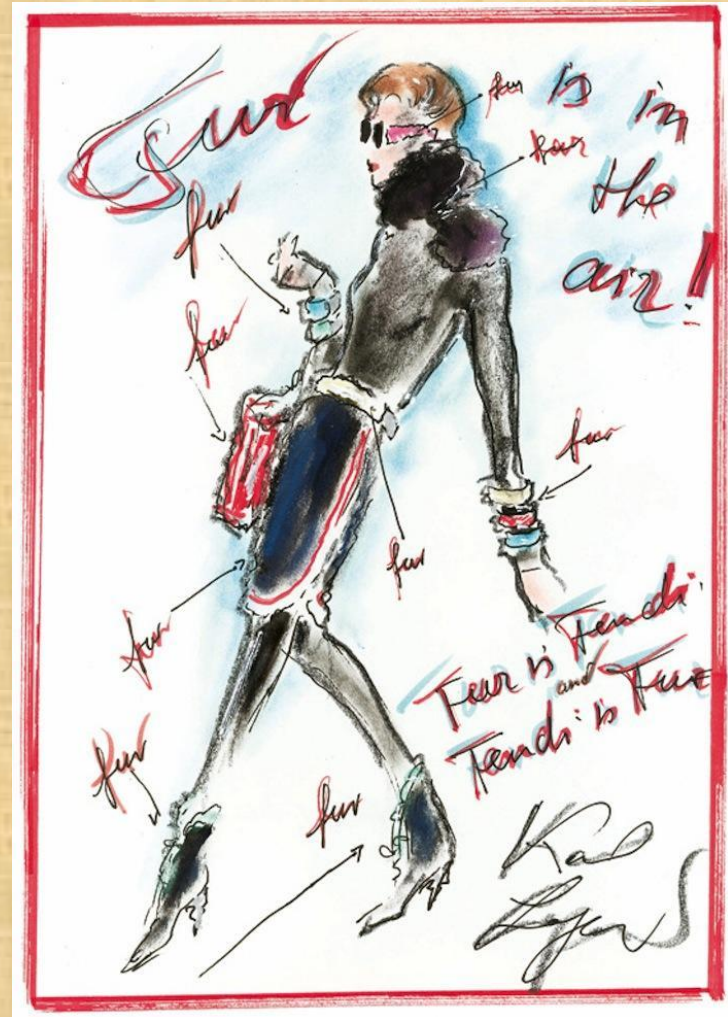 Fur is in
the
air!
fur
fur
fur
fur
fur
fur
fur
fur
fur
Fur is Fendi
and
Fendi is Fur
Karl